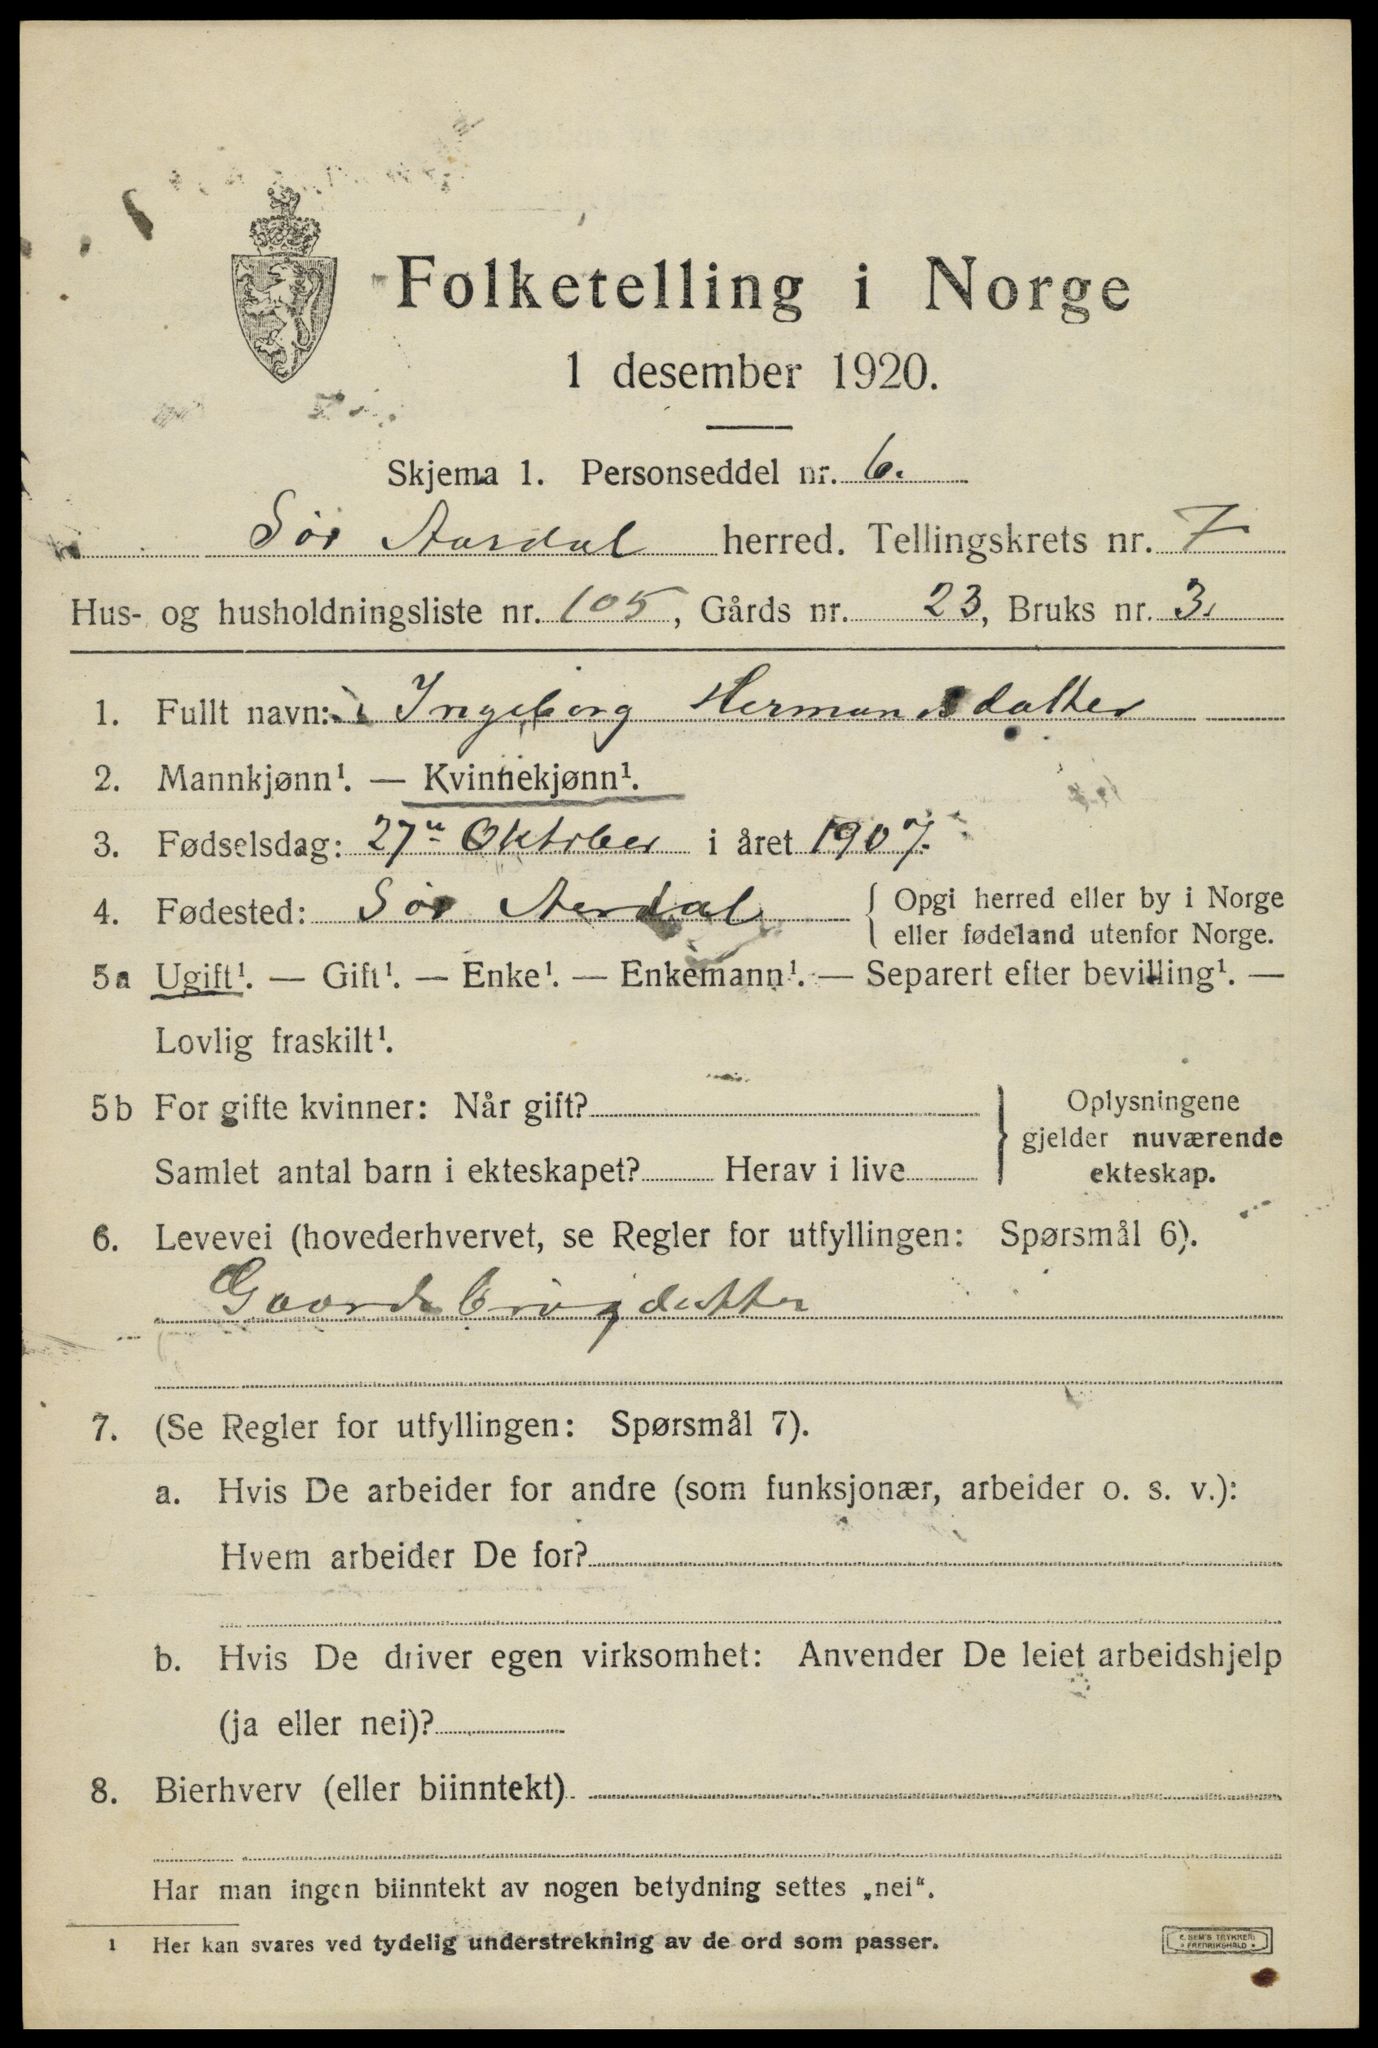 Folketelling i Norge
1 desember 1920.
Skjema 1. Personseddel nr. 6.
Sör Aurdal herred. Tellingskrets nr. 7
Hus- og husholdningsliste nr. 105, Gårds nr. 23, Bruks nr. 3.
1. Fullt navn: Ingeborg Hermansdatter
2. Mannkjønn¹. — Kvinnekjønn¹.
3. Fødselsdag: 27" Oktober i året 1907.
4. Fødested: Sör Aurdal { Opgi herred eller by i Norge
eller fødeland utenfor Norge.
5a Ugift¹. — Gift¹. — Enke¹. — Enkemann¹. — Separert efter bevilling¹. —
Lovlig fraskilt¹.
5b For gifte kvinner: Når gift? } Oplysningene
gjelder nuværende
Samlet antal barn i ekteskapet? Herav i live ekteskap.
6. Levevei (hovederhvervet, se Regler for utfyllingen: Spørsmål 6).
Gaardbrugdatter
7. (Se Regler for utfyllingen: Spørsmål 7).
a. Hvis De arbeider for andre (som funksjonær, arbeider o. s. v.):
Hvem arbeider De for?
b. Hvis De driver egen virksomhet: Anvender De leiet arbeidshjelp
(ja eller nei)?
8. Bierhverv (eller biinntekt)
Har man ingen biinntekt av nogen betydning settes „nei“.
1 Her kan svares ved tydelig understrekning av de ord som passer.
E. SEM'S TRYKKERI
• FREDRIKSHALD •